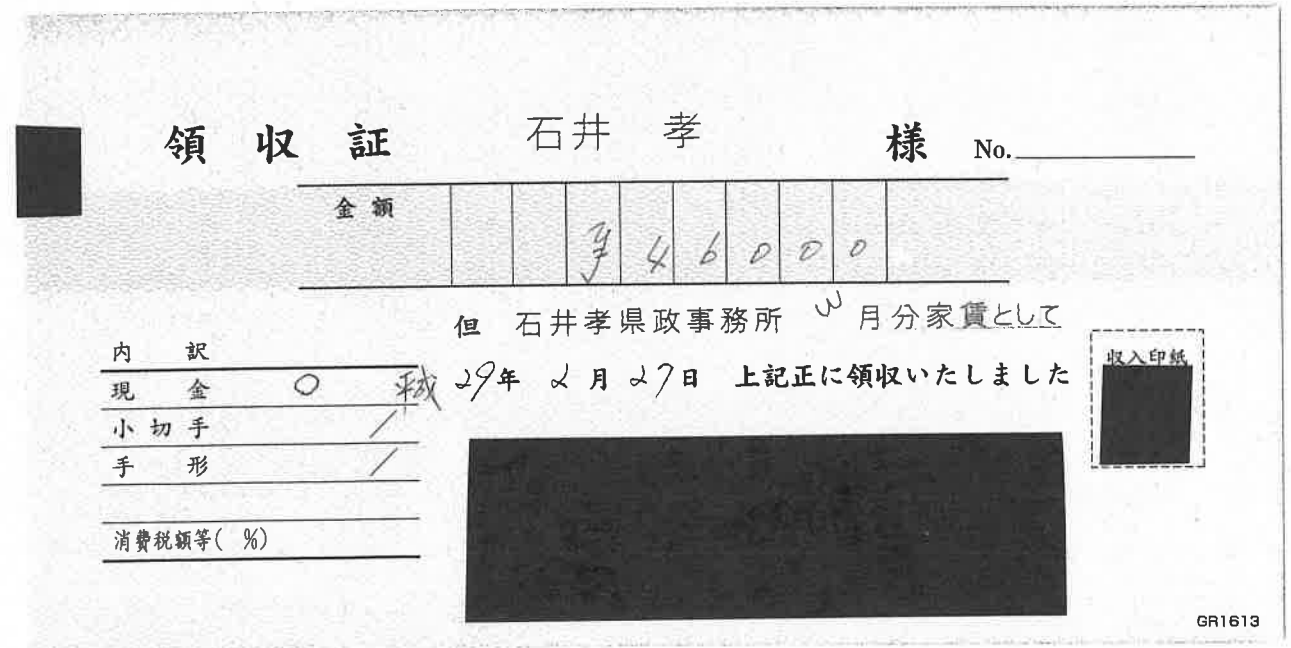 領収証 石井 孝 様 No.
金額 ¥46000
但 石井孝県政事務所 3月分家賃として
平成29年2月27日 上記正に領収いたしました
収入印紙
内訳
現金 ○
小切手 /
手形 /
消費税額等( %)
GR1613